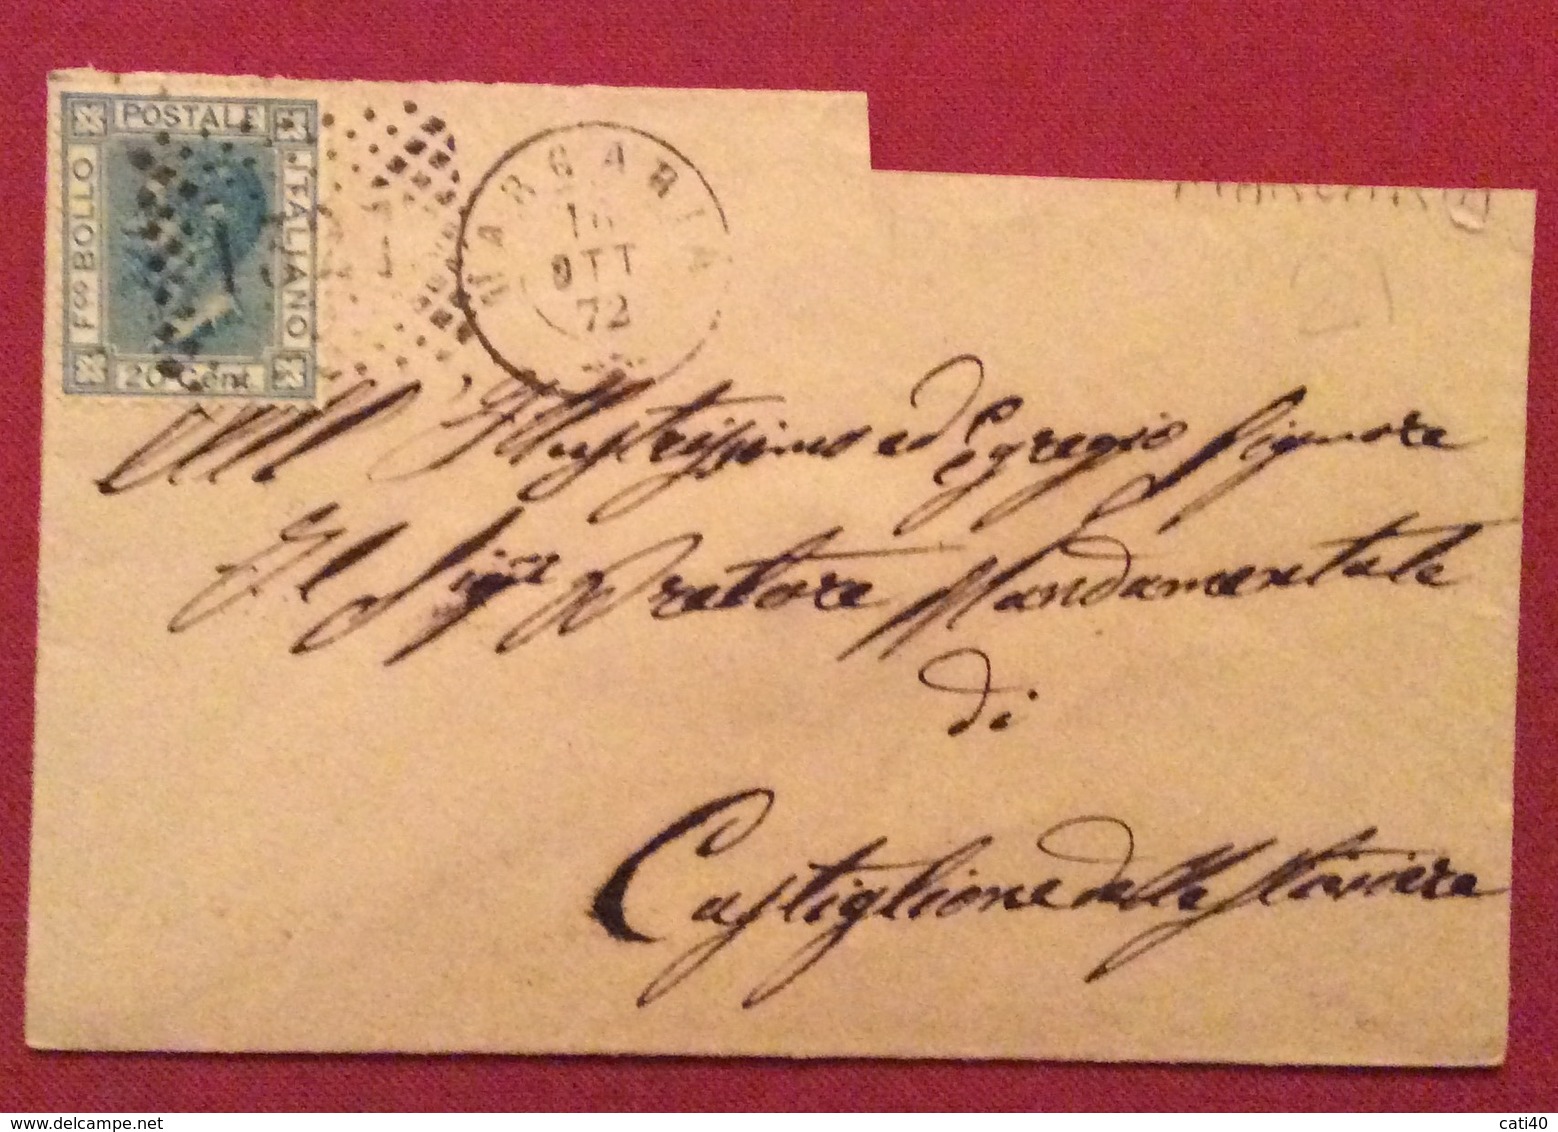 POSTALE
F.co BOLLO
ITALIANO
20 Cent.
MARGARIA
OTT
72
All' Illustrissimo ed Egregio Signore
Il Sigre Pretore Mandamentale
di
Castiglione delle Stiviere
delcampe.net
cati40